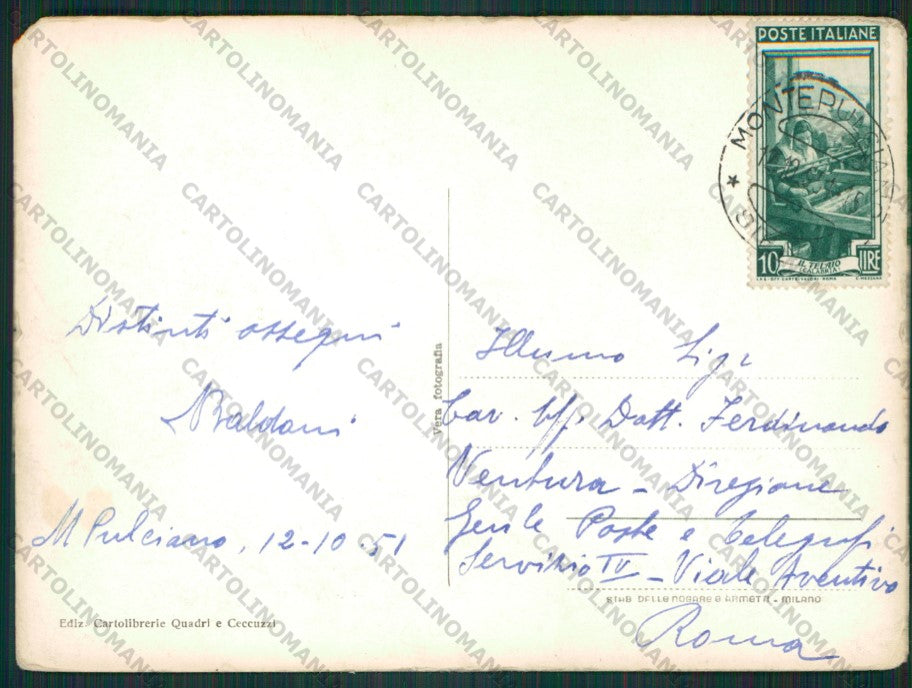 POSTE ITALIANE
10 LIRE
IL TELAIO
Distinti ossequi
Baldoni
M Pulciano, 12-10-51
Vera fotografia
Illumo Sig.
Cav. Uff. Dott. Ferdinando
Ventura - Direzione
Gen.le Poste e Telegrafi
Servizio IV - Viale Aventino
Roma
STAB. DALLE NOGARE E ARMETTI - MILANO
Ediz. Cartolibrerie Quadri e Ceccuzzi
CARTOLINOMANIA